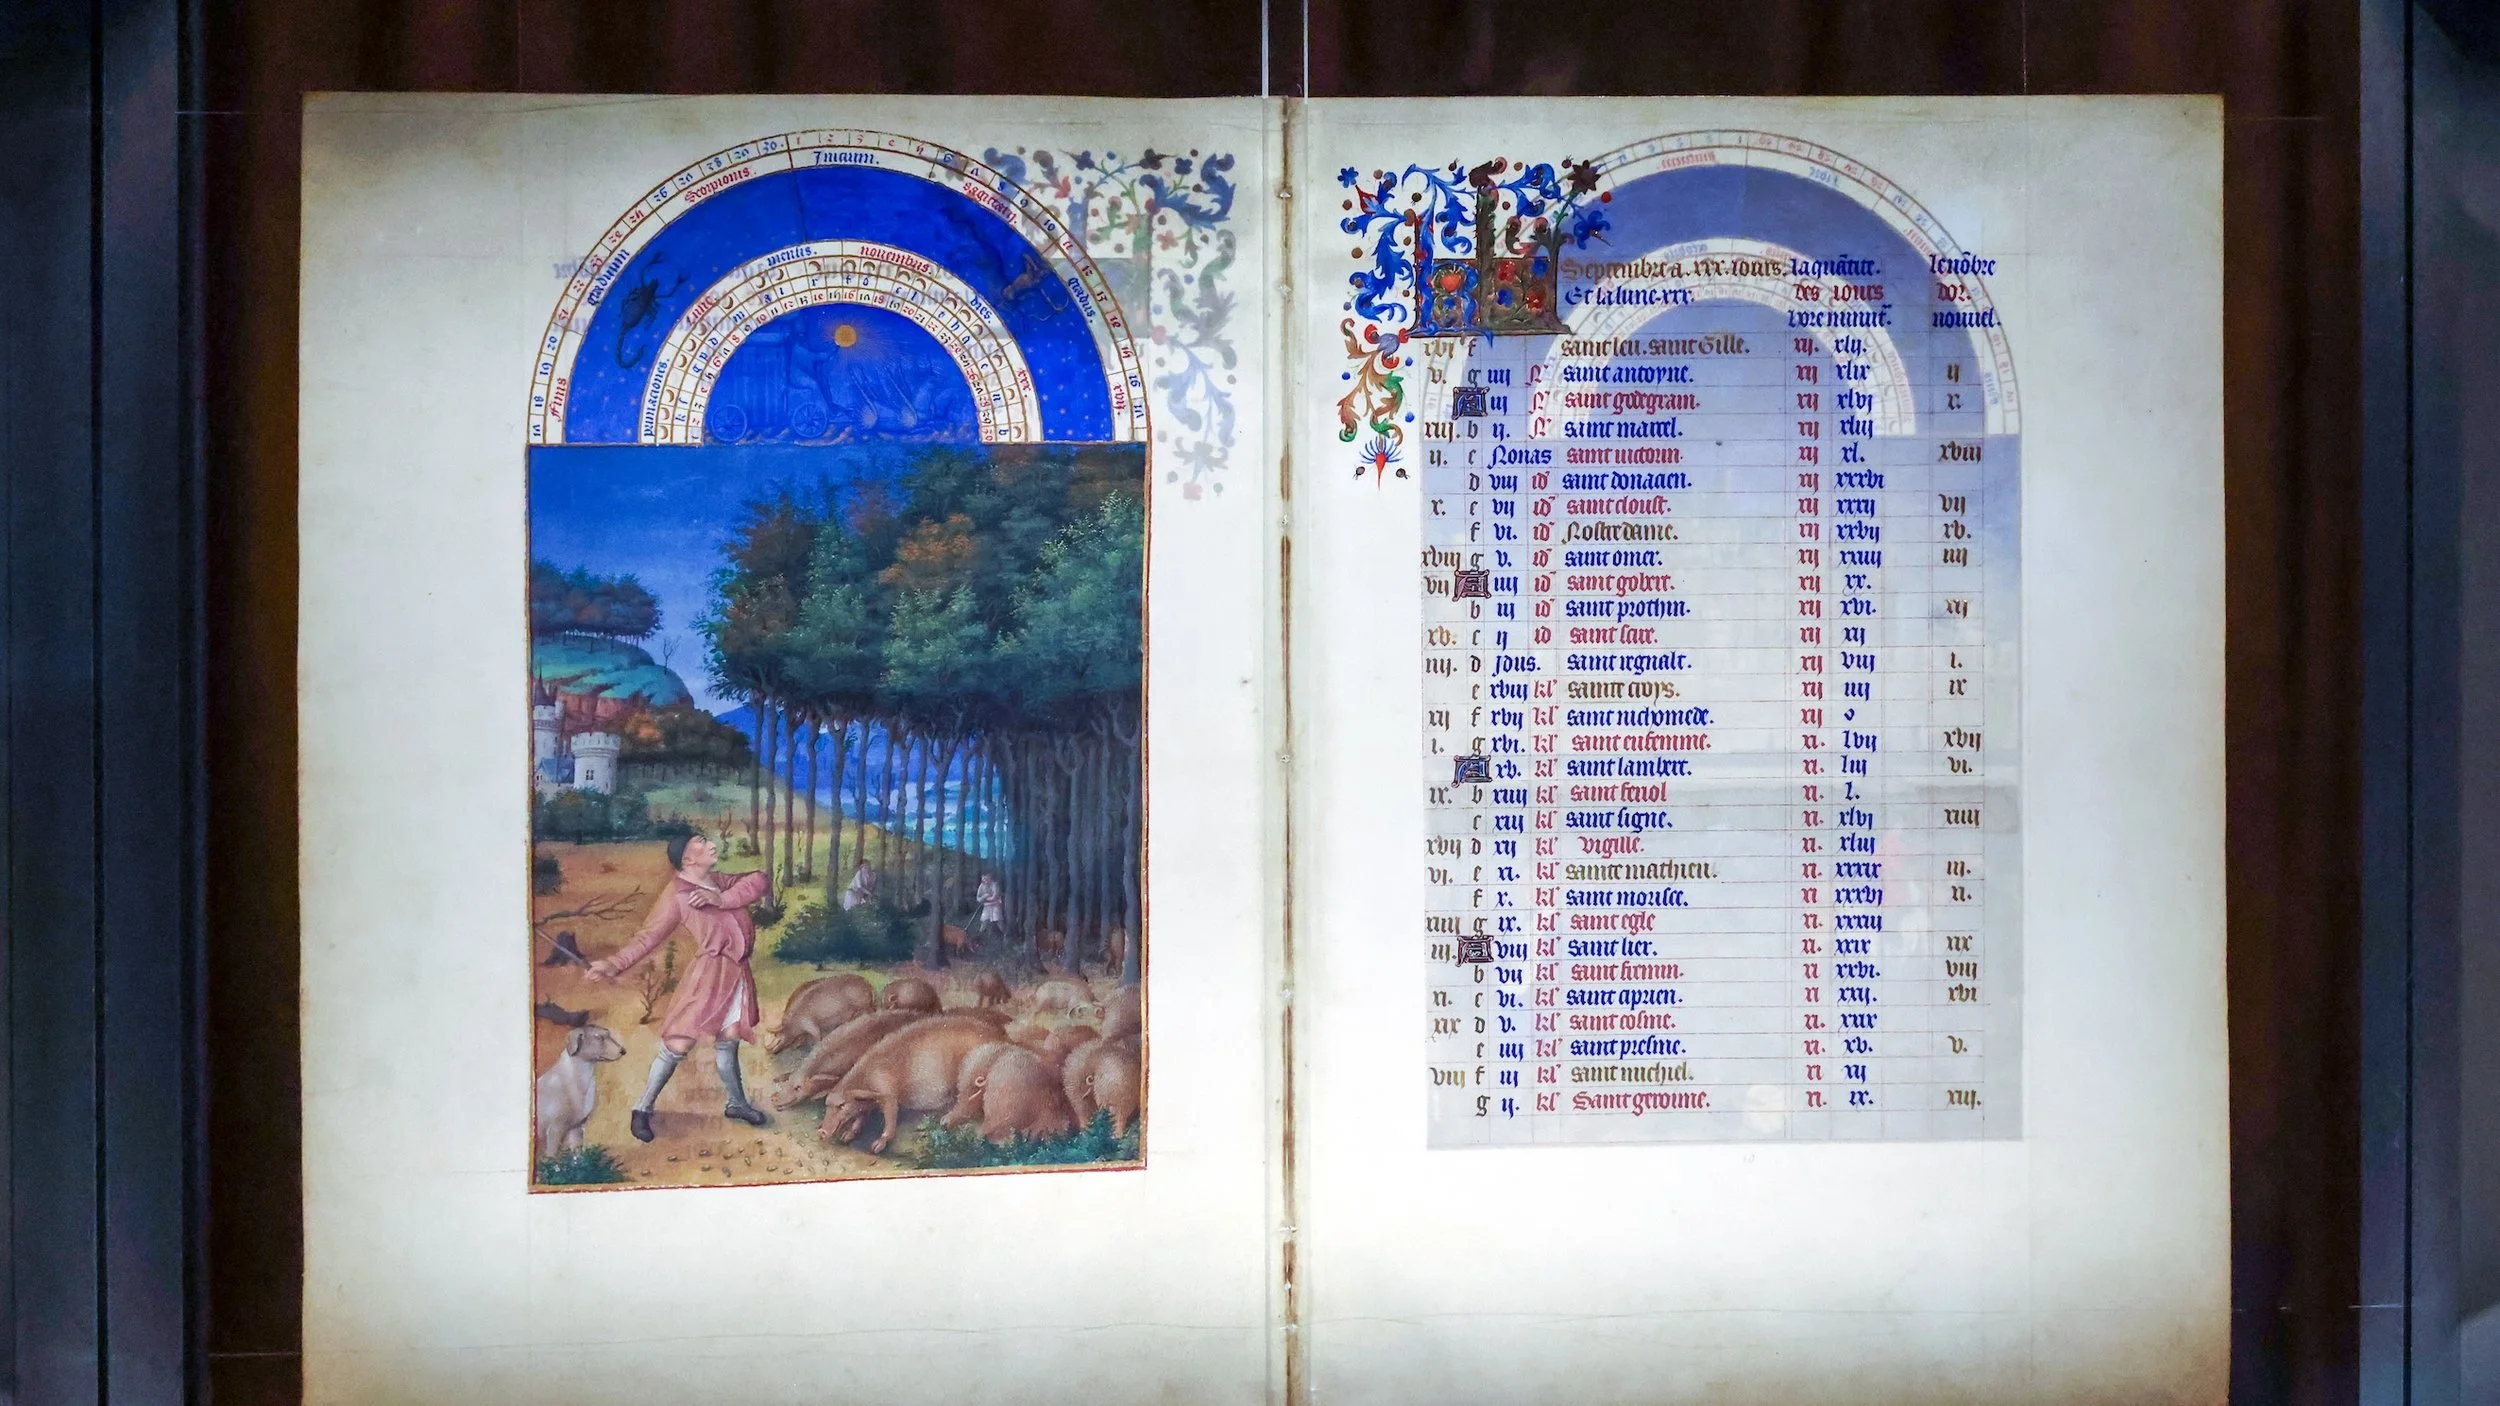 Inicium.
Scorpionis.
sagitarii.
graduum
gradus.
Finis
mensis.
novembris
dies
xxx.
primaciones.
lune
Septembre a .xxx. iours.
Et la lune .xxx.
la quātite.
des iours
le nōbre
dor.
nouuel.
xvi f saint leu. saint Gille. xij. xlij.
v. g iiij N saint antoyne. xij xlix ij
A iij N saint godegran. xij xlvj x.
xiij. b ij. N saint marcel. xij xliij
ij. c Nonas saint victorin. xij xl. xviij
d viij id saint donacien. xij xxxvi
x. e vij id saint cloust. xij xxxij vij
f vi. id Nostre dame. xij xxvij xv.
xviij g v. id saint omer. xij xxiiij iiij
vij A iiij id saint gobert. xij xx.
b iij id saint prothin. xij xvi. xij
xv. c ij id saint sair. xij xij
iiij. d Idus. saint regnalt. xij viij i.
e xviij kl sainte croys. xij iiij ix
xij f xvij kl saint nichomede. xij o
i. g xvi. kl saint eufemme. xi. lvij xvij
A xv. kl saint lambert. xi. liij vi.
ix. b xiiij kl saint feriol xi. l.
c xiij kl saint signe. xi. xlvj xiiij
xvij d xij kl vigille. xi. xliij
vj. e xi. kl sainte mathieu. xi. xxxix iij.
f x. kl saint morisse. xi xxxvj xi.
xiiij g ix. kl saint egle xi. xxxiij
iij. A viij kl saint lier. xi. xxix xix
b vij kl saint fremin. xi xxvi. viij
xi. c vi. kl saint ciprien. xi xxij. xvi
xix d v. kl saint cosme. xi. xix
e iiij kl saint presme. xi. xv. v.
viij f iij kl saint michiel. xi xij
g ij. kl Saint gerome. xi. ix. xiij.